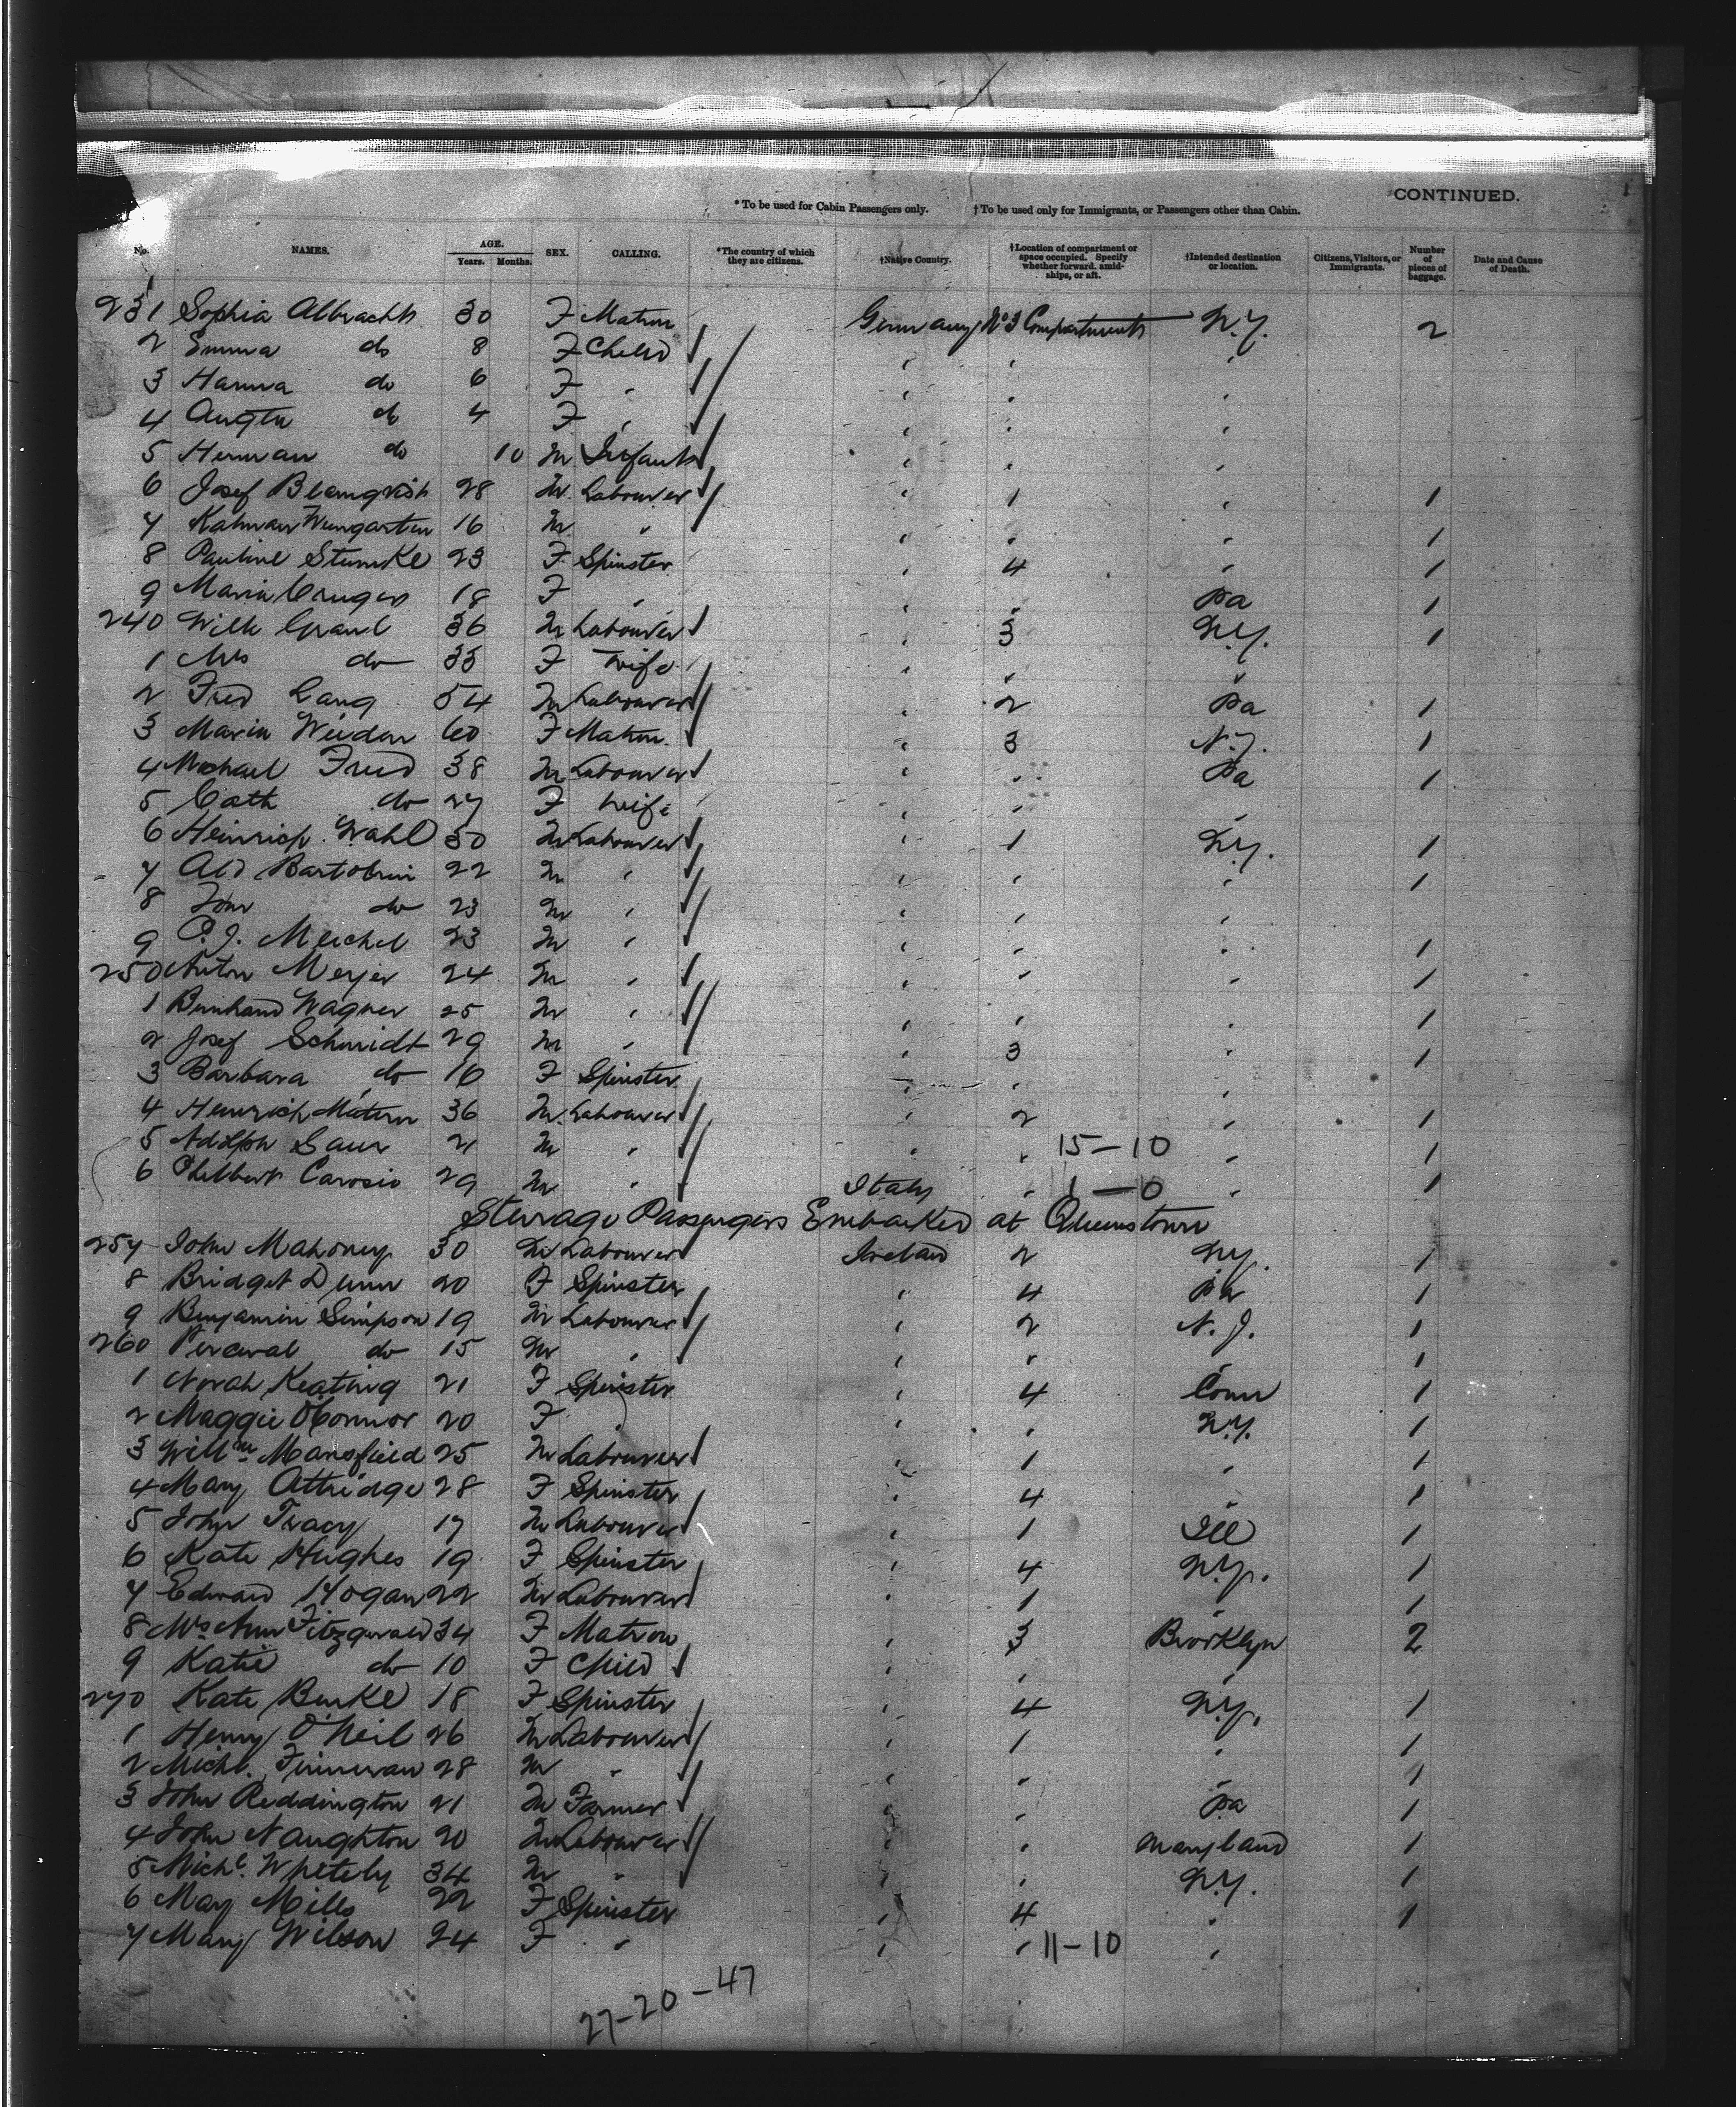 CONTINUED.
* To be used for Cabin Passengers only. † To be used only for Immigrants, or Passengers other than Cabin.
No. NAMES. AGE. Years. Months. SEX. CALLING. *The country of which they are citizens. †Native Country. †Location of compartment or space occupied. Specify whether forward, amidships, or aft. †Intended destination or location. Citizens, Visitors, or Immigrants. Number of pieces of baggage. Date and Cause of Death.
231 Sophia Albrecht 30 F Matron Germany No 3 Compartment N.Y. 2
2 Emma do 8 F Child " " "
3 Hanna do 6 F " " " "
4 do 4 F " " " "
5 Herman do 10 M Infant " " "
6 Josef 28 M Labourer " 1 " 1
7 Kalman Weingarten 16 M " " " " 1
8 Pauline Stumke 23 F Spinster " 4 " 1
9 Maria Cruger 18 F " " " Pa 1
240 Wilh Graul 36 M Labourer " 3 N.Y. 1
1 Mrs do 33 F Wife " " "
2 Fred Lang 54 M Labourer " 2 Pa 1
3 Maria 60 F Matron " 3 N.J. 1
4 Michael Fried 38 M Labourer " " Pa 1
5 Cath do 27 F Wife " " "
6 Heinrich Wahl 30 M Labourer " 1 N.Y. 1
7 Bartolrin 22 M " " " " 1
8 do 23 M " " " "
9 P. J. Meichel 23 M " " " " 1
250 Anton Meyer 24 M " " " " 1
1 Bernhard Wagner 25 M " " " " 1
2 Josef Schmidt 29 M " " 3 " 1
3 Barbara do 16 F Spinster " " "
4 Heinrich Matern 36 M Labourer " 2 " 1
5 Adolph Saur 21 M " " " 15-10 " 1
6 Philbert Carosio 29 M " Italy " 1-0 " 1
Steerage Passengers Embarked at Queenstown
257 John Mahoney 30 M Labourer Ireland 2 N.Y. 1
8 Bridget Dunn 20 F Spinster " 4 Pa 1
9 Benjamin Simpson 19 M Labourer " 2 N.J. 1
260 Perceval do 15 M " " " " 1
1 Norah Keating 21 F Spinster " 4 Conn 1
2 Maggie O'Connor 20 F " " " N.Y. 1
3 Willm Mansfield 25 M Labourer " 1 " 1
4 Mary Attridge 28 F Spinster " 4 " 1
5 John Tracy 17 M Labourer " 1 Ill 1
6 Kate Hughes 19 F Spinster " 4 N.Y. 1
7 Edward Hogan 22 M Labourer " 1 " 1
8 Mrs Ann Fitzgerald 34 F Matron " 3 Brooklyn 2
9 Katie do 10 F Child " " "
270 Kate Burke 18 F Spinster " 4 N.Y. 1
1 Henry O'Neil 26 M Labourer " 1 " 1
2 Michl. Finneran 28 M " " " " 1
3 John Reddington 21 M Farmer " " Pa 1
4 John Naughton 20 M Labourer " " Maryland 1
5 Michl. Whitely 34 M " " " N.Y. 1
6 Mary Mills 22 F Spinster " 4 " 1
7 Mary Wilson 24 F " " " 11-10 "
27-20-47